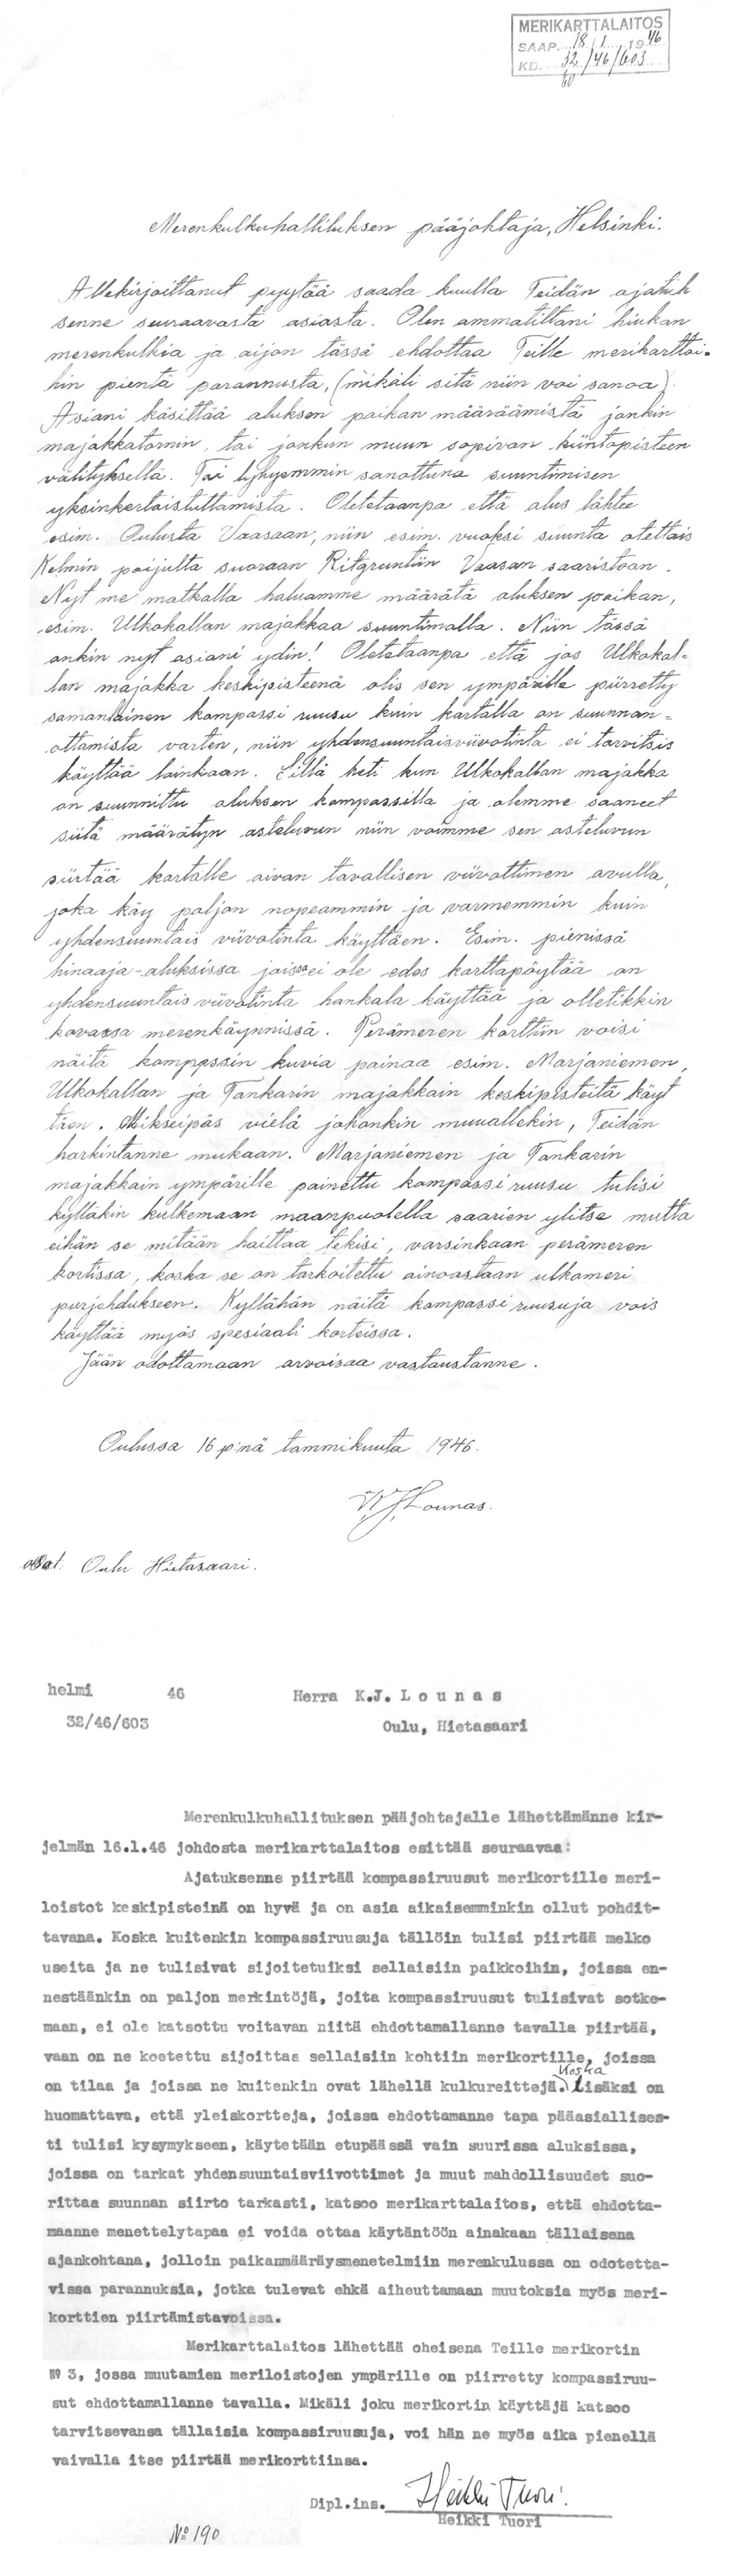 MERIKARTTALAITOS
SAAP. 18/1 1946
KD. 32/46/603
60
Merenkulkuhallituksen pääjohtaja, Helsinki.
Allekirjoittanut pyytää saada kuulla Teidän ajatuk
senne seuraavasta asiasta. Olen ammatiltani hiukan
merenkulkia ja aijon tässä ehdottaa Teille merikarttoi-
hin pientä parannusta, (mikäli sitä niin voi sanoa).
Asiani käsittää aluksen paikan määräämistä jonkin
majakkatornin, tai jonkun muun sopivan kiintopisteen
välityksellä. Tai lyhyemmin sanottuna suuntimisen
yksinkertaistuttamista. Oletetaanpa että alus lähtee
esim. Oulusta Vaasaan, niin esim. vuoksi suunta otettais
Kelmin poijulta suoraan Ritgruntiin Vaasan saaristoon.
Nyt me matkalla haluamme määrätä aluksen paikan,
esim. Ulkokallan majakkaa suuntimalla. Niin tässä
onkin nyt asiani ydin! Oletetaanpa että jos Ulkokal-
lan majakka keskipisteenä olis sen ympärille piirretty
samanlainen kompassi ruusu kuin kartalla on suunnan-
ottamista varten, niin yhdensuuntaisviivotinta ei tarvitsis
käyttää lainkaan. Sillä heti kun Ulkokallan majakka
on suunnittu aluksen kompassilla ja olemme saaneet
siitä määrätyn asteluvun niin voimme sen asteluvun
siirtää kartalle aivan tavallisen viivottimen avulla,
joka käy paljon nopeammin ja varmemmin kuin
yhdensuuntais viivotinta käyttäen. Esim. pienissä
hinaaja-aluksissa joissa ei ole edes karttapöytää on
yhdensuuntais viivotinta hankala käyttää ja olletikkin
kovassa merenkäynnissä. Perämeren korttiin voisi
näitä kompassin kuvia painaa esim. Marjaniemen,
Ulkokallan ja Tankarin majakkain keskipisteitä käyt
täen. Mikseipäs vielä johonkin muuallekin, Teidän
harkintanne mukaan. Marjaniemen ja Tankarin
majakkain ympärille painettu kompassi ruusu tulisi
kylläkin kulkemaan maanpuolella saarien ylitse mutta
eihän se mitään haittaa tekisi, varsinkaan perämeren
kortissa, koska se on tarkoitettu ainoastaan ulkomeri
purjehdukseen. Kyllähän näitä kompassi ruusuja vois
käyttää myös spesiaali korteissa.
Jään odottamaan arvoisaa vastaustanne.
Oulussa 16 p:nä tammikuuta 1946.
K.J.Lounas.
Oulu Hietasaari.
helmi 46 Herra K.J. Lounas
32/46/603 Oulu, Hietasaari
Merenkulkuhallituksen pääjohtajalle lähettämänne kir-
jelmän 16.1.46 johdosta merikarttalaitos esittää seuraavaa:
Ajatuksenne piirtää kompassiruusut merikortille meri-
loistot keskipisteinä on hyvä ja on asia aikaisemminkin ollut pohdit-
tavana. Koska kuitenkin kompassiruusuja tällöin tulisi piirtää melko
useita ja ne tulisivat sijoitetuiksi sellaisiin paikkoihin, joissa en-
nestäänkin on paljon merkintöjä, joita kompassiruusut tulisivat sotke-
maan, ei ole katsottu voitavan niitä ehdottamallanne tavalla piirtää,
vaan on ne koetettu sijoittaa sellaisiin kohtiin merikortille, joissa
Koska
on tilaa ja joissa ne kuitenkin ovat lähellä kulkureittejä. lisäksi on
huomattava, että yleiskortteja, joissa ehdottamanne tapa pääasiallises-
ti tulisi kysymykseen, käytetään etupäässä vain suurissa aluksissa,
joissa on tarkat yhdensuuntaisviivottimet ja muut mahdollisuudet suo-
rittaa suunnan siirto tarkasti, katsoo merikarttalaitos, että ehdotta-
maanne menettelytapaa ei voida ottaa käytäntöön ainakaan tällaisena
ajankohtana, jolloin paikanmääräysmenetelmiin merenkulussa on odotetta-
vissa parannuksia, jotka tulevat ehkä aiheuttamaan muutoksia myös meri-
korttien piirtämistavoissa.
Merikarttalaitos lähettää oheisena Teille merikortin
№ 3, jossa muutamien meriloistojen ympärille on piirretty kompassiruu-
sut ehdottamallanne tavalla. Mikäli joku merikortin käyttäjä katsoo
tarvitsevansa tällaisia kompassiruusuja, voi hän ne myös aika pienellä
vaivalla itse piirtää merikorttiinsa.
Dipl.ins. Heikki Tuori
Heikki Tuori
№ 190